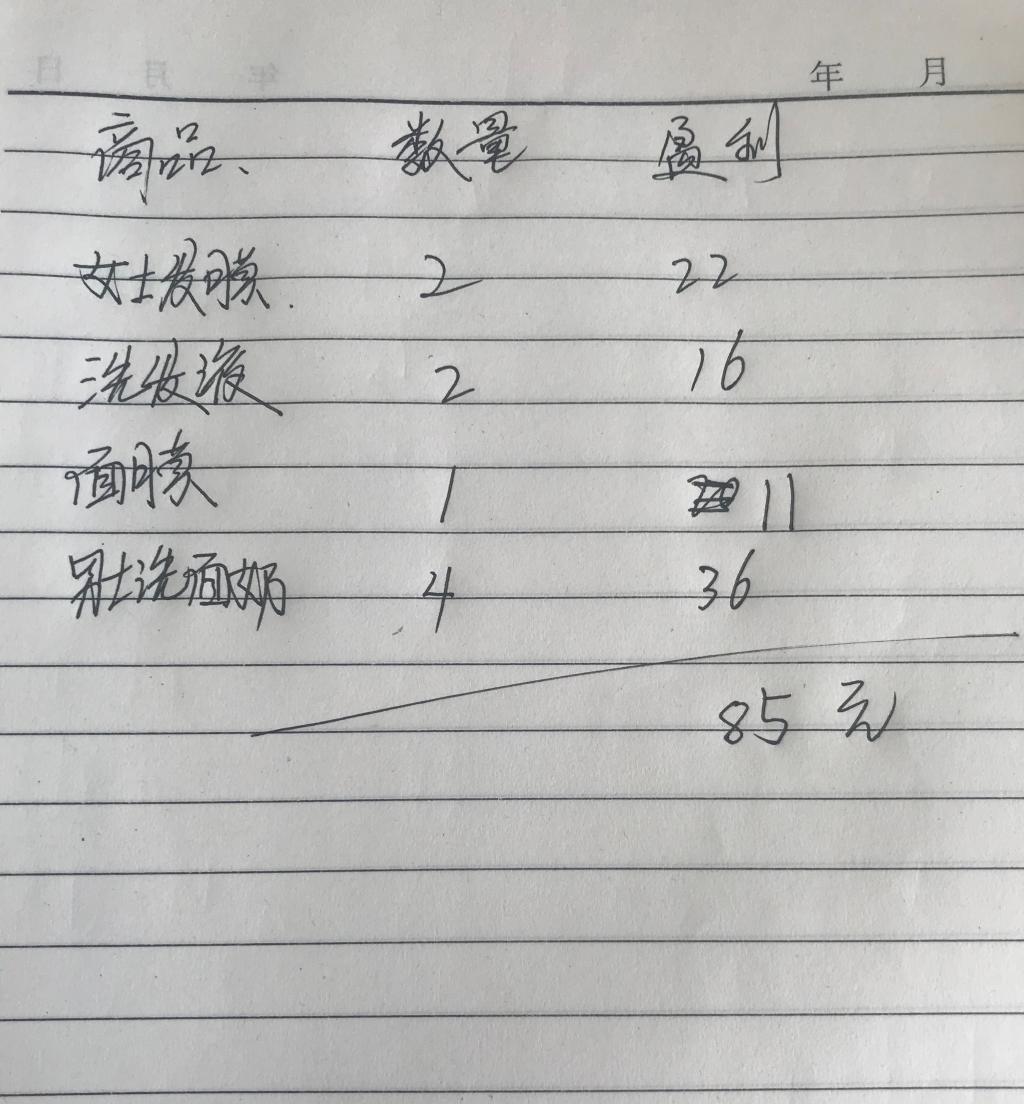 年 月
商品、 数量 盈利
女士发膜. 2 22
洗发液 2 16
面膜 1 11
男士洗面奶 4 36
85 元